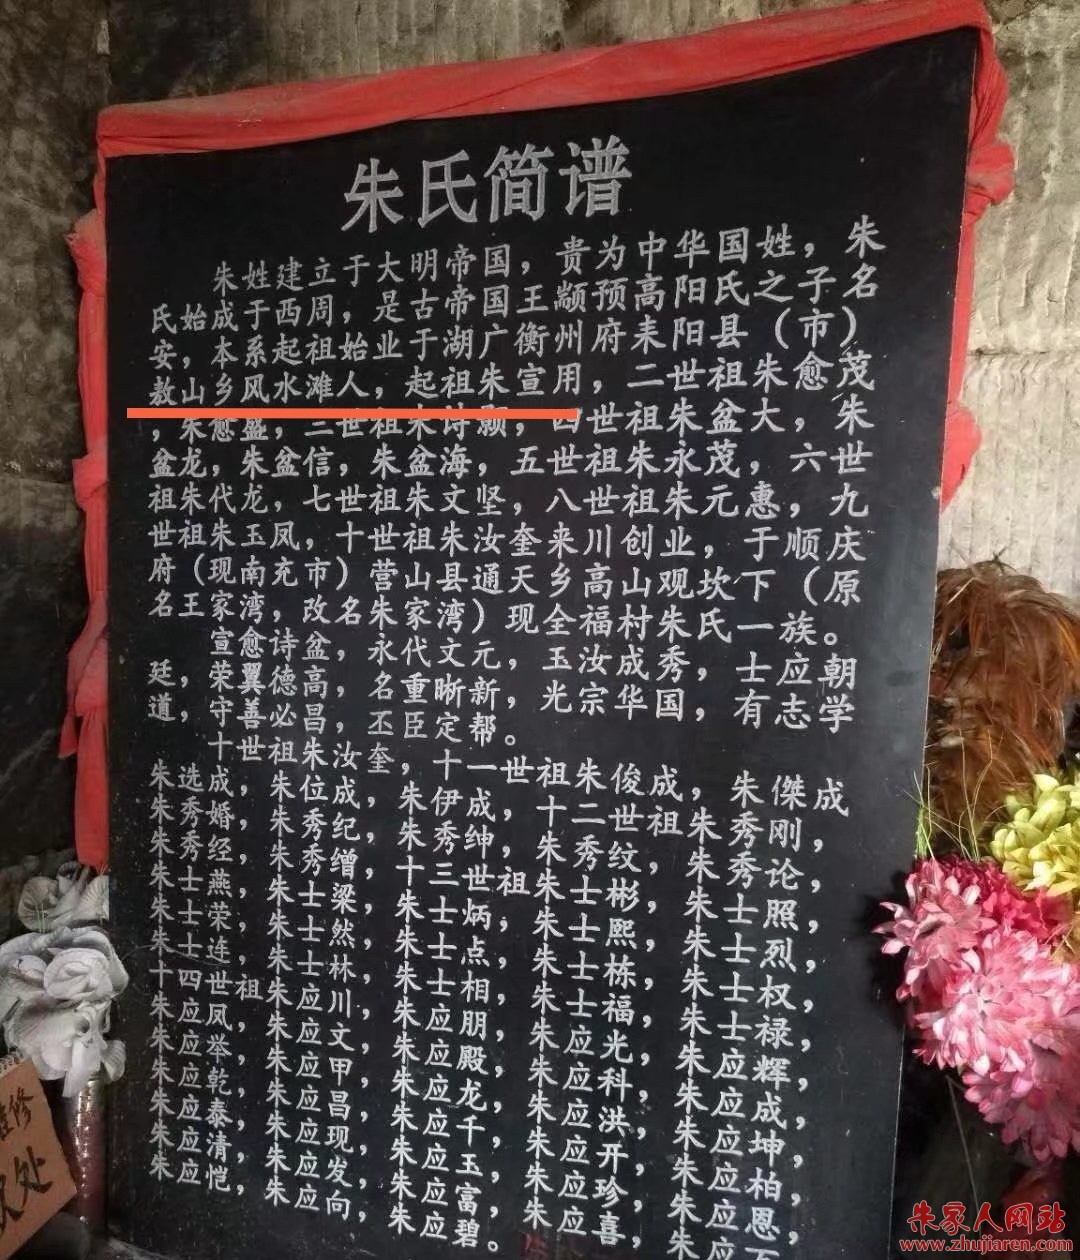 朱氏简谱
朱姓建立于大明帝国，贵为中华国姓，朱
氏始成于西周，是古帝国王颛预高阳氏之子名
安，本系起祖始业于湖广衡州府耒阳县（市）
敖山乡风水滩人，起祖朱宣用，二世祖朱愈茂
，朱愈盛，三世祖朱诗颢，四世祖朱盆大，朱
盆龙，朱盆信，朱盆海，五世祖朱永茂，六世
祖朱代龙，七世祖朱文坚，八世祖朱元惠，九
世祖朱玉凤，十世祖朱汝奎来川创业，于顺庆
府（现南充市）营山县通天乡高山观坎下（原
名王家湾，改名朱家湾）现全福村朱氏一族。
宣愈诗盆，永代文元，玉汝成秀，士应朝
廷，荣翼德高，名重晰新，光宗华国，有志学
道，守善必昌，丕臣定帮。
十世祖朱汝奎，十一世祖朱俊成，朱傑成
朱选成，朱位成，朱伊成，十二世祖朱秀刚，
朱秀婚，朱秀纪，朱秀绅，朱秀纹，朱秀论，
朱秀经，朱秀缯，十三世祖朱士彬，朱士照，
朱士燕，朱士梁，朱士炳，朱士熙，朱士烈，
朱士荣，朱士然，朱士点，朱士栋，朱士权，
朱士连，朱士林，朱士相，朱士福，朱士禄，
十四世祖朱应川，朱应朋，朱应光，朱应辉，
朱应凤，朱应文，朱应殿，朱应科，朱应成，
朱应举，朱应甲，朱应龙，朱应洪，朱应坤，
朱应乾，朱应昌，朱应千，朱应开，朱应柏，
朱应泰，朱应现，朱应玉，朱应珍，朱应恩，
朱应清，朱应发，朱应富，朱应喜，朱应
朱应恺，朱应向，朱应碧。
修
处
朱家人网站
www.zhujiaren.com